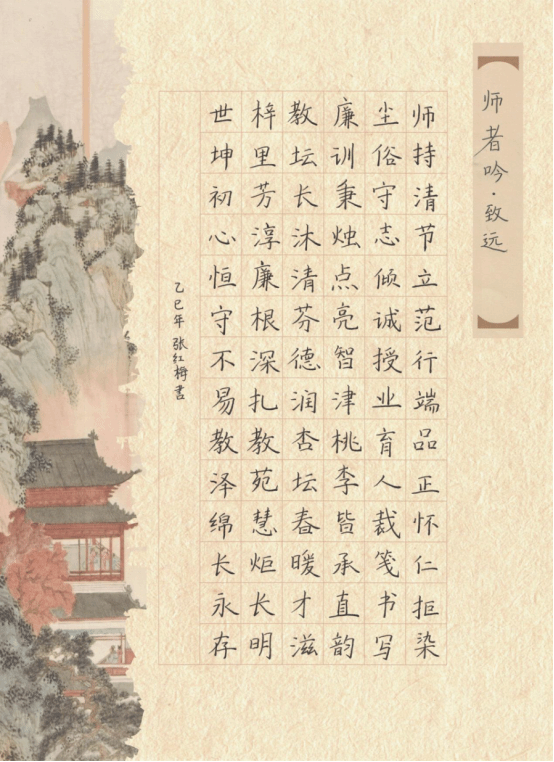 师者吟·致远
师持清节立范行端品正怀仁拒染
尘俗守志倾诚授业育人裁笺书写
廉训秉烛点亮智津桃李皆承直韵
教坛长沐清芬德润杏坛春暖才滋
梓里芳淳廉根深扎教苑慧炬长明
世坤初心恒守不易教泽绵长永存
乙巳年 张红梅书